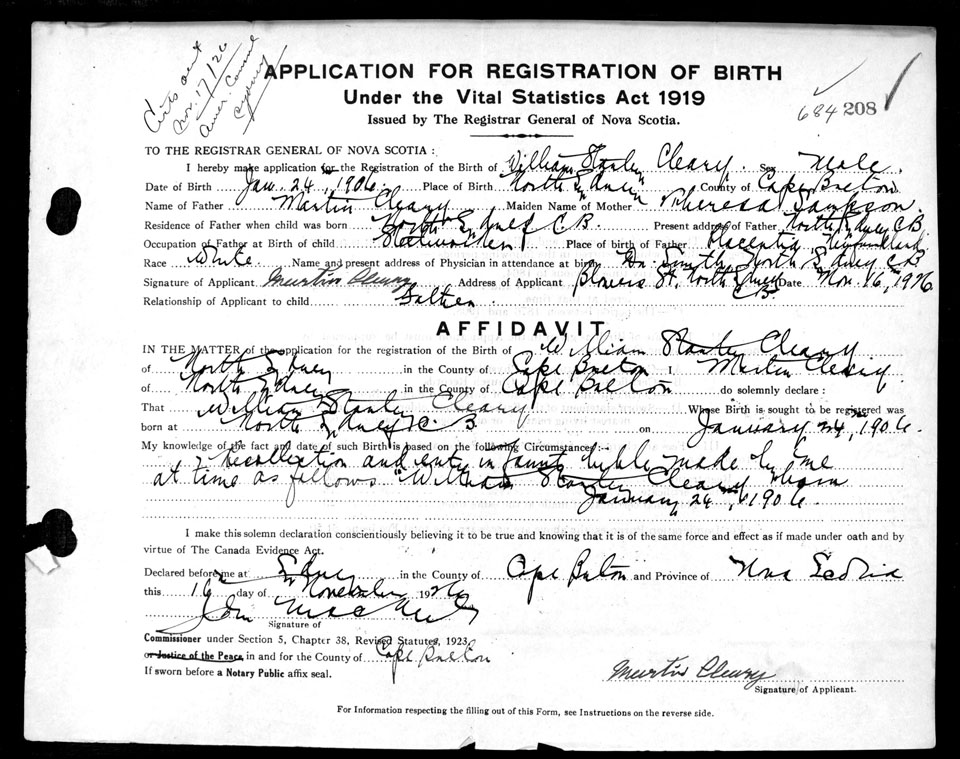 Certs sent
Nov. 17/26
Amer. Consul
Sydney
APPLICATION FOR REGISTRATION OF BIRTH
Under the Vital Statistics Act 1919
Issued by The Registrar General of Nova Scotia.
684 208
TO THE REGISTRAR GENERAL OF NOVA SCOTIA:
I hereby make application for the Registration of the Birth of William Stanley Cleary. Sex Male.
Date of Birth Jan. 24th, 1906. Place of Birth North Sydney County of Cape Breton
Name of Father Martin Cleary Maiden Name of Mother Theresa Sampson.
Residence of Father when child was born North Sydney C B. Present address of Father North Sydney C.B.
Occupation of Father at Birth of child Place of birth of Father Placentia Newfoundland
Race White. Name and present address of Physician in attendance at birth Dr. Smith, North Sydney C B
Signature of Applicant Martin Cleary Address of Applicant Blowers St. North Sydney C.B. Date Nov. 16, 1926
Relationship of Applicant to child Father
AFFIDAVIT
IN THE MATTER of the application for the registration of the Birth of William Stanley Cleary
of North Sydney in the County of Cape Breton I, Martin Cleary.
of North Sydney in the County of Cape Breton do solemnly declare:
That William Stanley Cleary Whose Birth is sought to be registered was
born at North Sydney, C. B. on January 24th, 1906.
My knowledge of the fact and date of such Birth is based on the following Circumstances:—
recollection and entry in family bible made by me
at time as follows "William Stanley Cleary born
January 24th, 1906.
I make this solemn declaration conscientiously believing it to be true and knowing that it is of the same force and effect as if made under oath and by
virtue of The Canada Evidence Act.
Declared before me at Sydney in the County of Cape Breton and Province of Nova Scotia
this 16th day of November 1926
John MacNeil
Signature of
Commissioner under Section 5, Chapter 38, Revised Statutes, 1923,
or Justice of the Peace, in and for the County of Cape Breton
If sworn before a Notary Public affix seal.
Martin Cleary
Signature of Applicant.
For Information respecting the filling out of this Form, see Instructions on the reverse side.